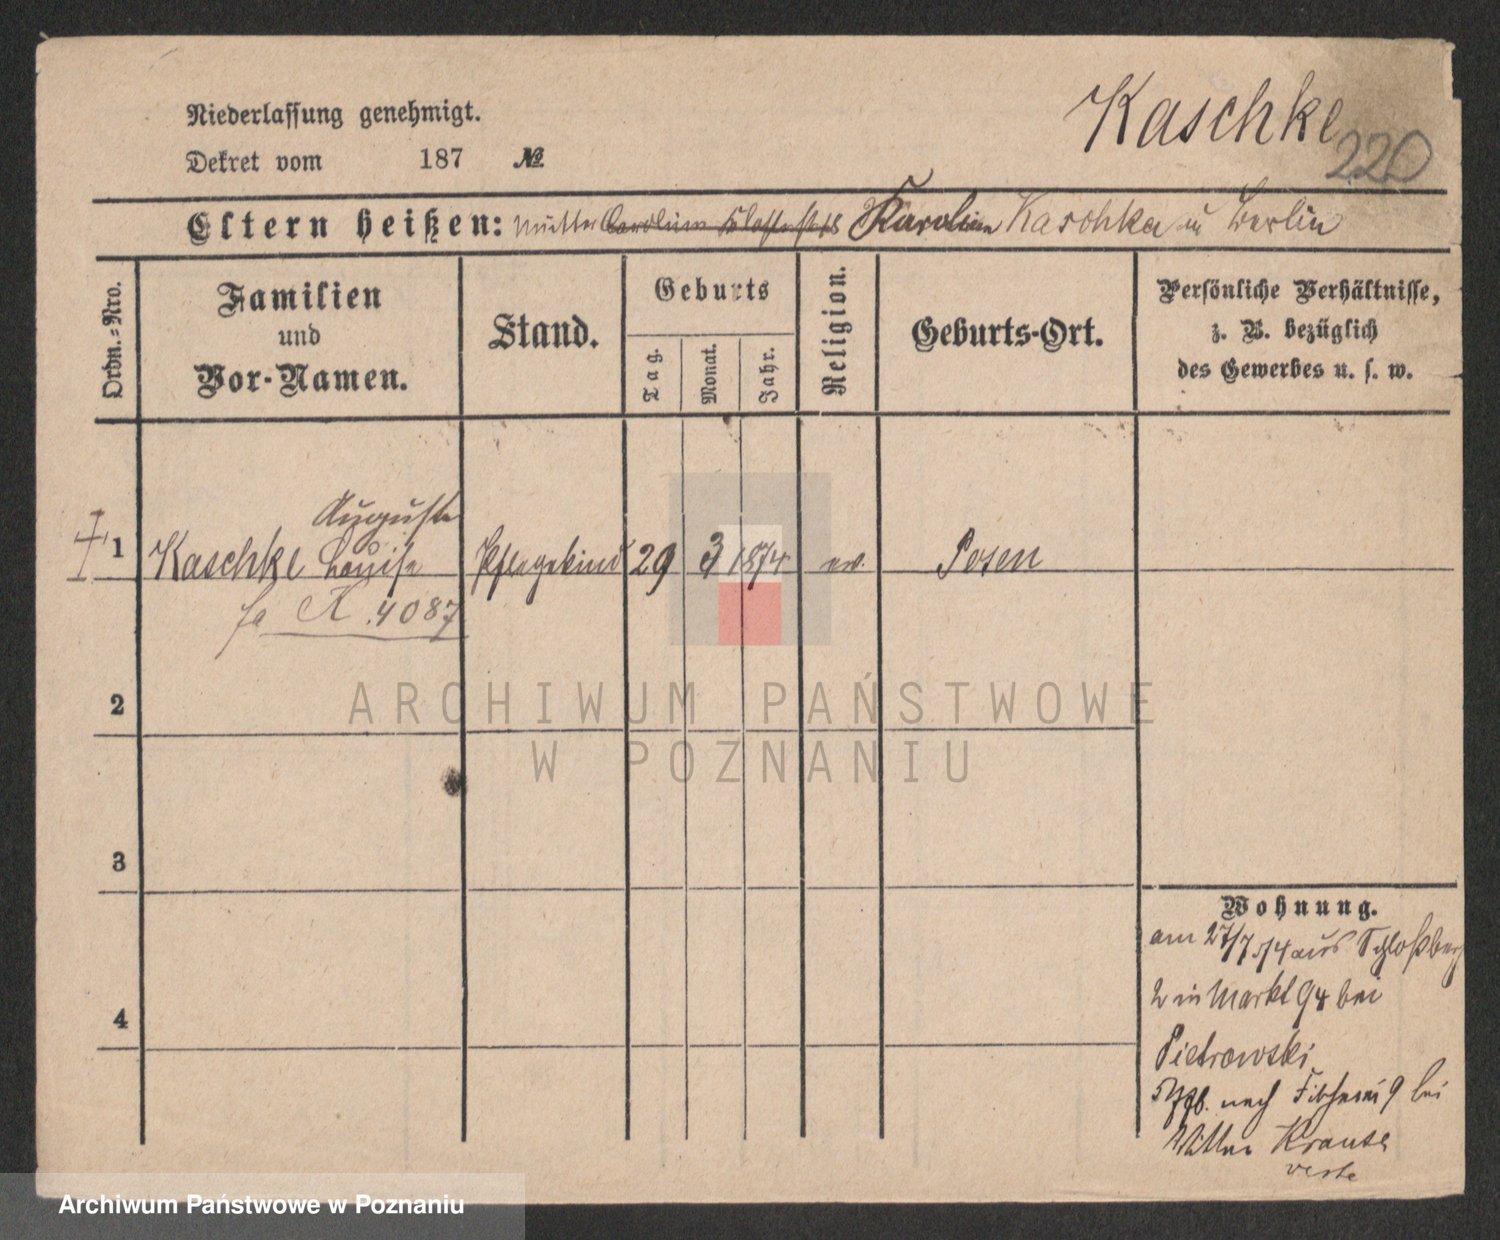 Kaschke
220
Niederlassung genehmigt.
Dekret vom 187 №
Eltern heißen: Mutter Karoline Kaschke in Berlin
Ordn.-Nro.
Familien
und
Vor-Namen.
Stand.
Geburts
Tag.
Monat.
Jahr.
Religion.
Geburts-Ort.
Persönliche Verhältnisse,
z. B. bezüglich
des Gewerbes u. s. w.
Auguste
1 Kaschke Louise Pflegekind 29 3 1874 ev. Posen
K. 4087
2
3
4
Wohnung.
am 27/7 74 aus Schloßberg
2 in Markt 94 bei
Pietrowski
nach Fischerei 9 bei
Wittwe Krause
ARCHIWUM PAŃSTWOWE
W POZNANIU
Archiwum Państwowe w Poznaniu